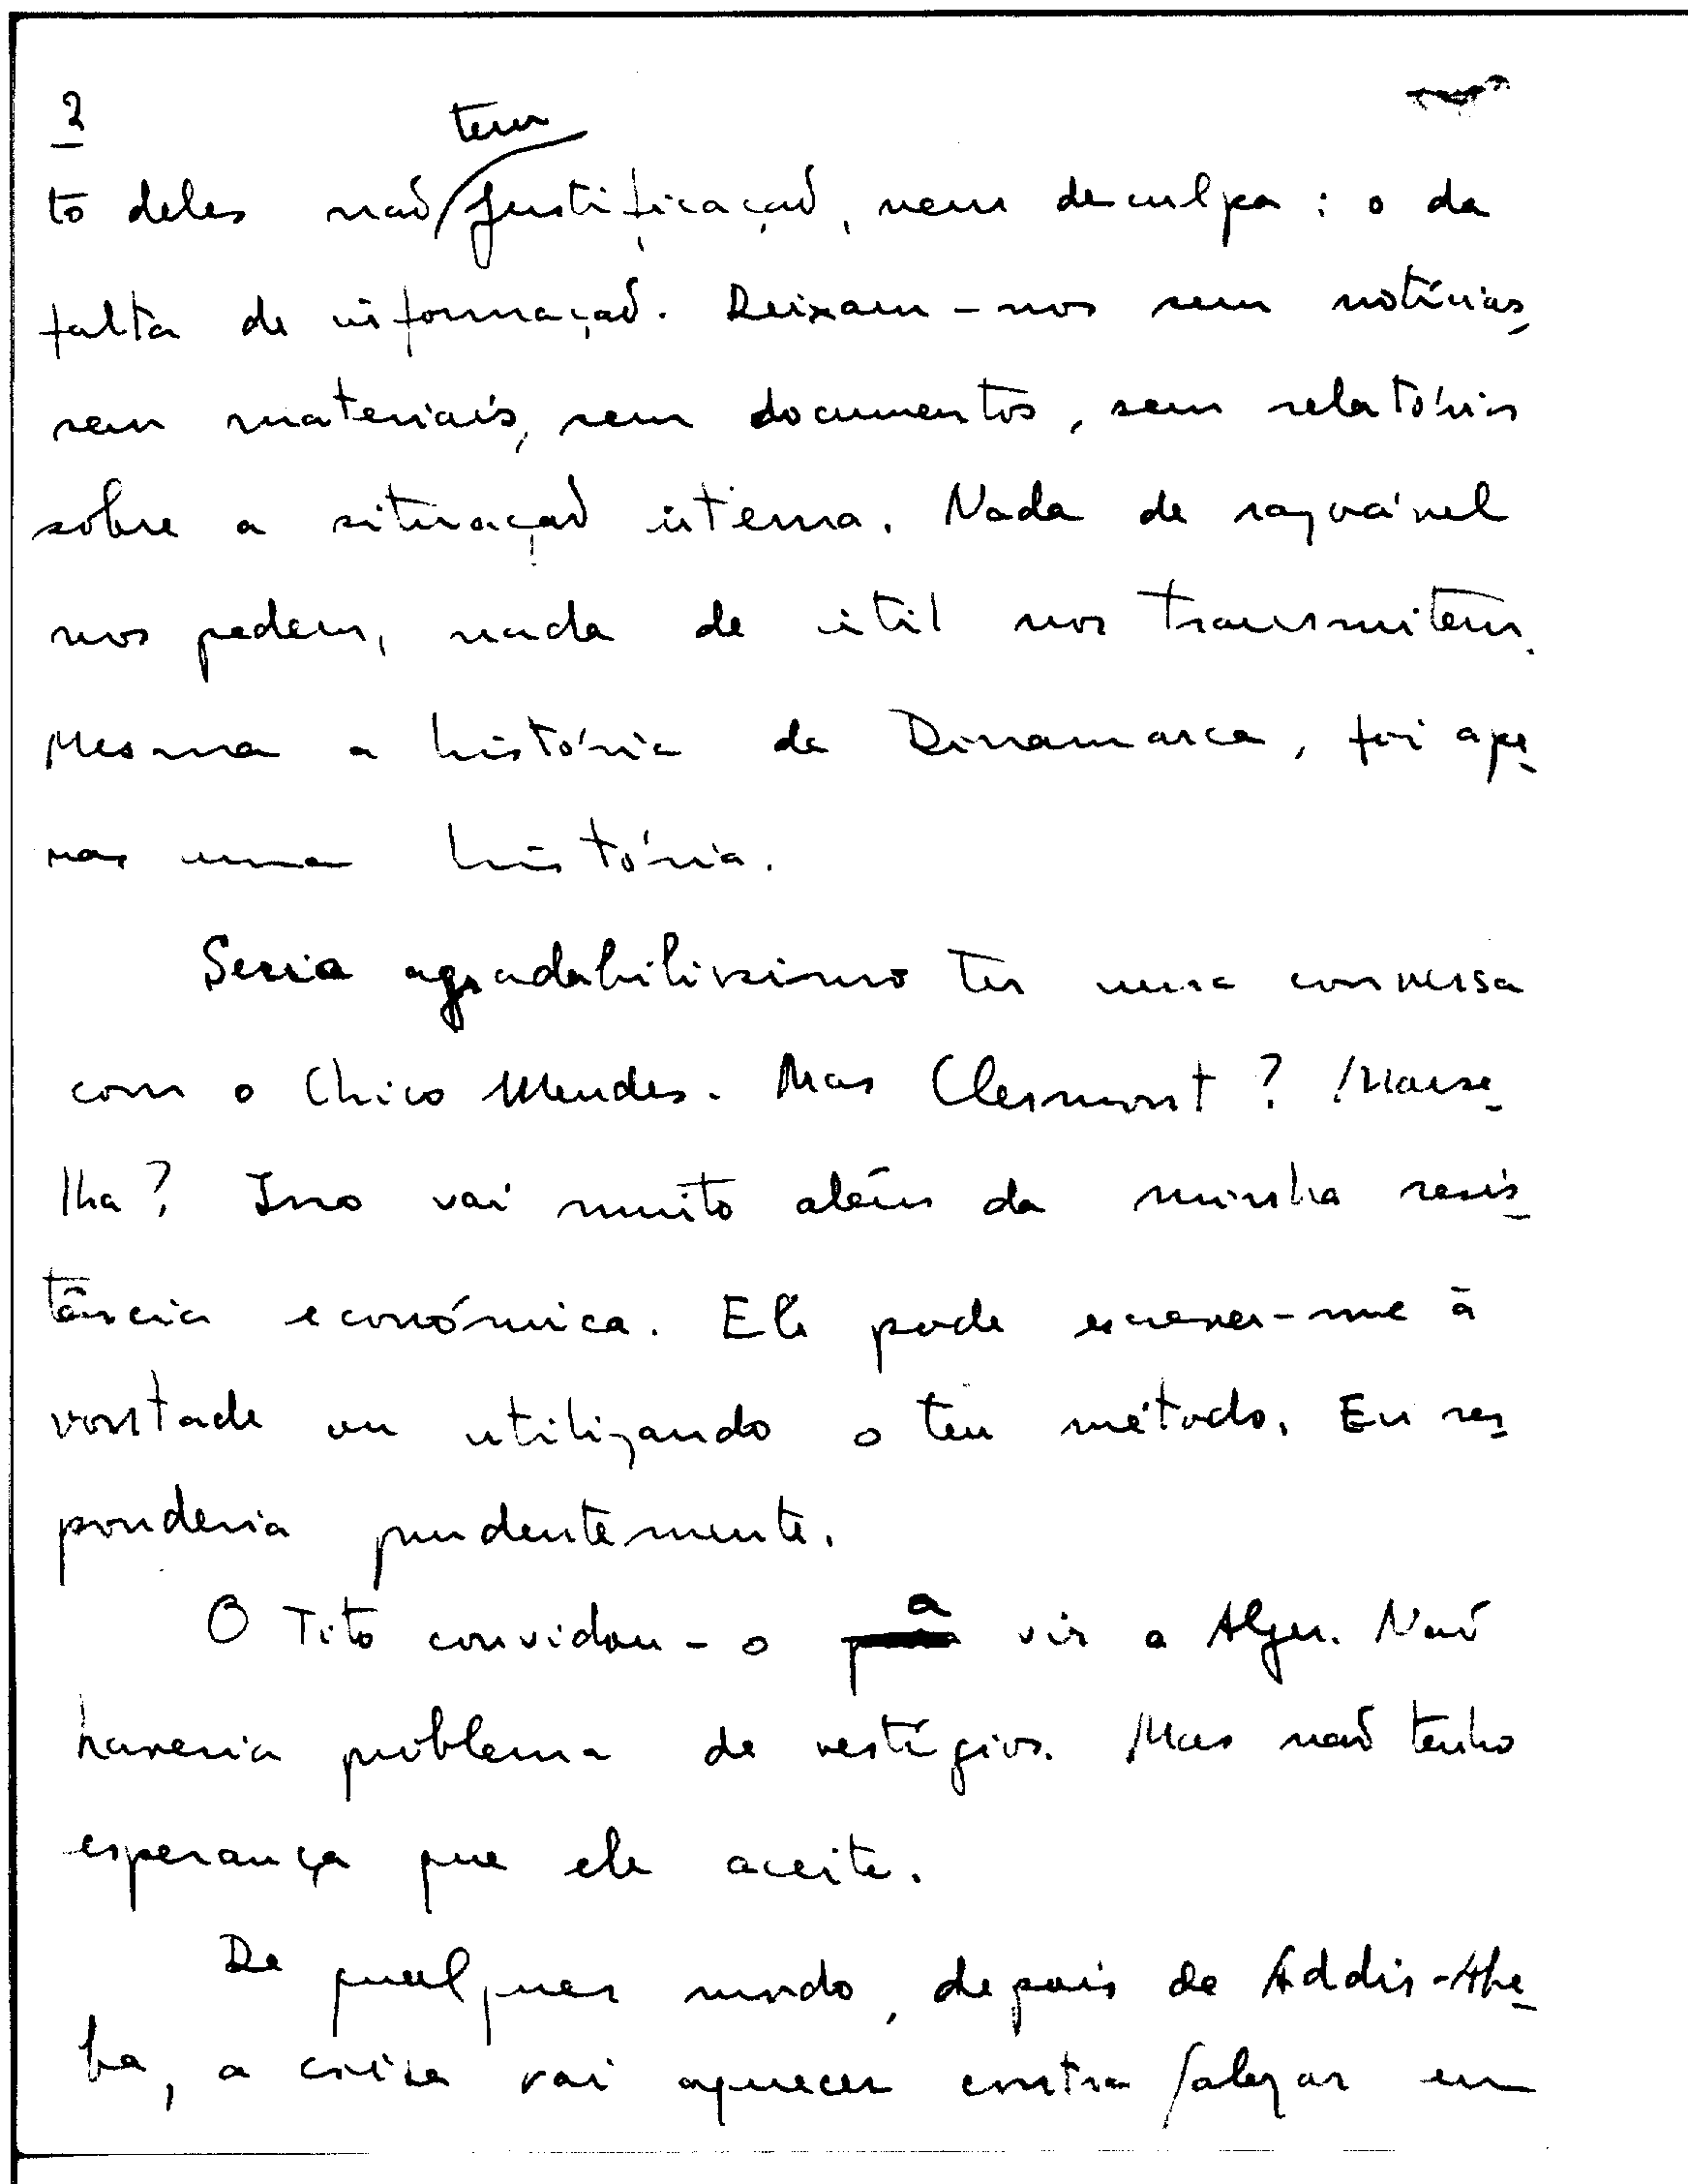 2
tem
to deles não justificação, nem desculpa: o da
falta de informação. Deixam-nos sem notícias,
sem materiais, sem documentos, sem relatórios
sôbre a situação interna. Nada de razoável
nos pedem, nada de útil nos transmitem.
Mesma a história da Dinamarca, foi ape-
nas uma história.
Seria agradabilissimo ter uma conversa
com o Chico Mendes. Mas Clermont? Marse-
lha? Isso vai muito além da minha resis-
tência económica. Ele pode escrever-me à
vontade ou utilizando o teu método. Eu res-
ponderia prudentemente.
O Tito convidou-o a vir a Alger. Não
haveria problema de vestígios. Mas não tenho
esperança que ele aceite.
De qualquer modo, depois de Addis-Abe-
ba, a coisa vai aquecer contra Salazar em